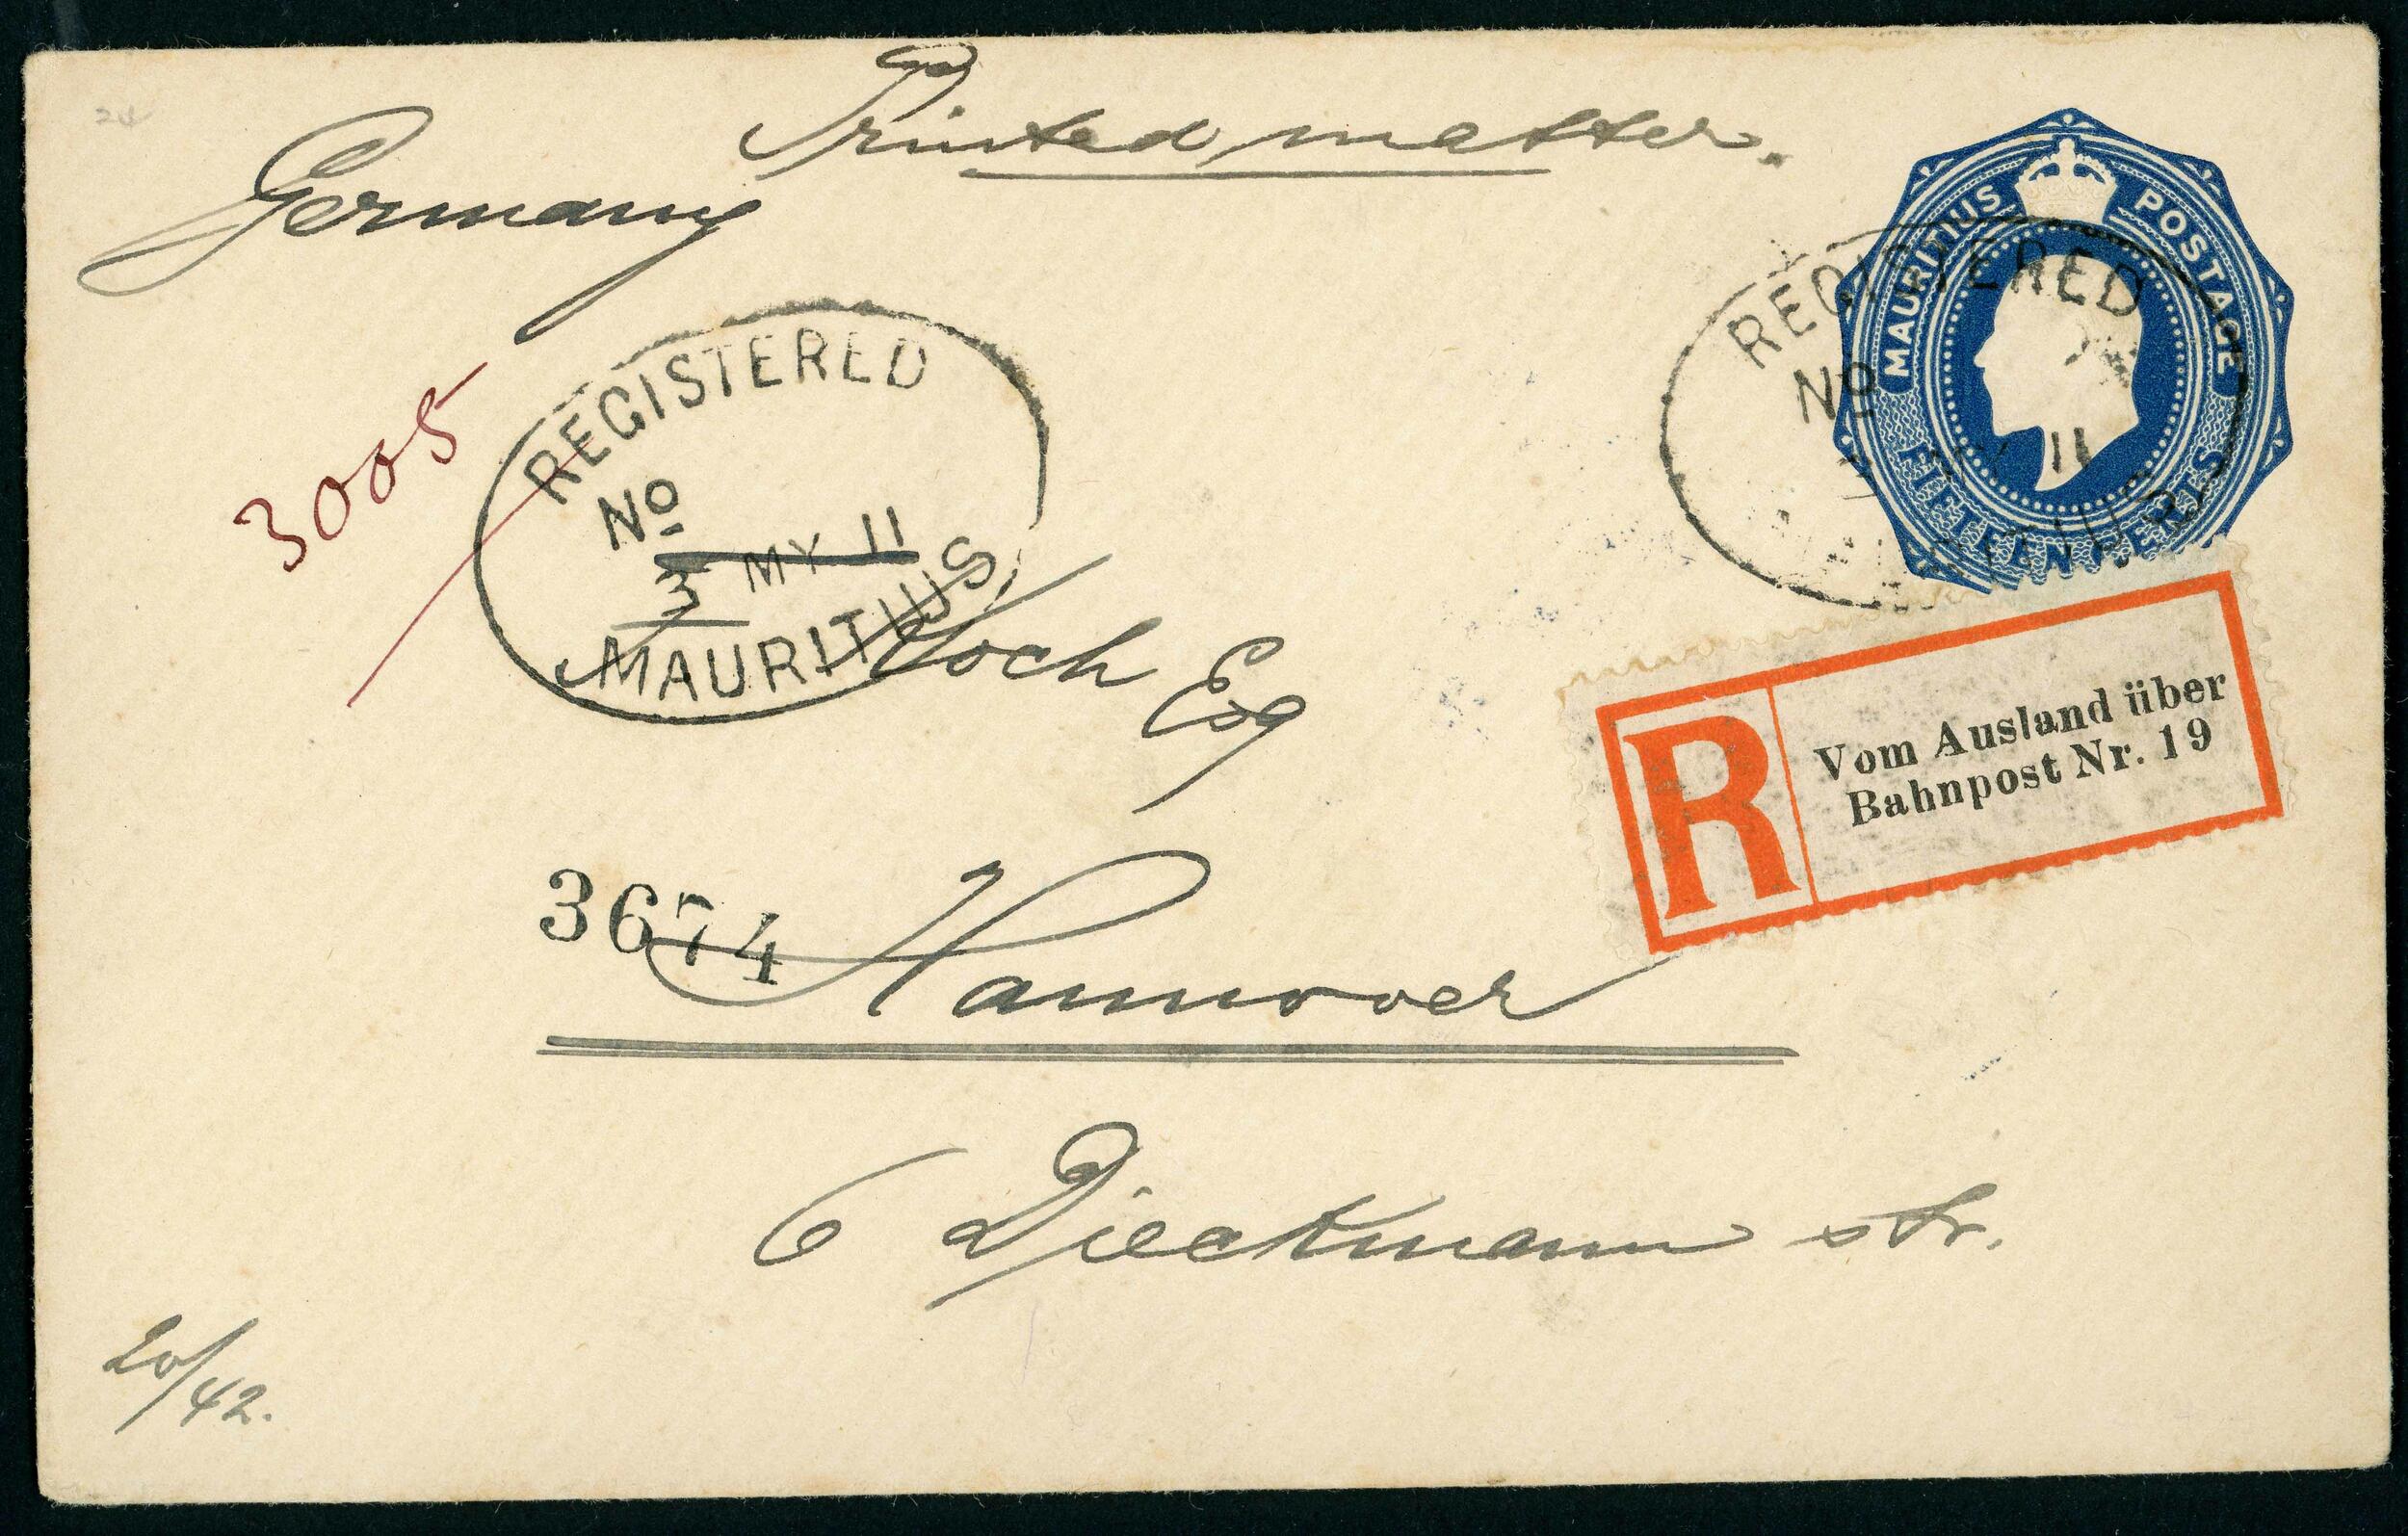 Printed matter.
Germany
MAURITIUS POSTAGE
FIFTEEN CENTS
REGISTERED
No
11
3005
REGISTERED
No
3 MY 11
MAURITIUS
Koch Esq
R
Vom Ausland über
Bahnpost Nr. 19
3674
Hannover
6 Dieckmann str.
20/42.